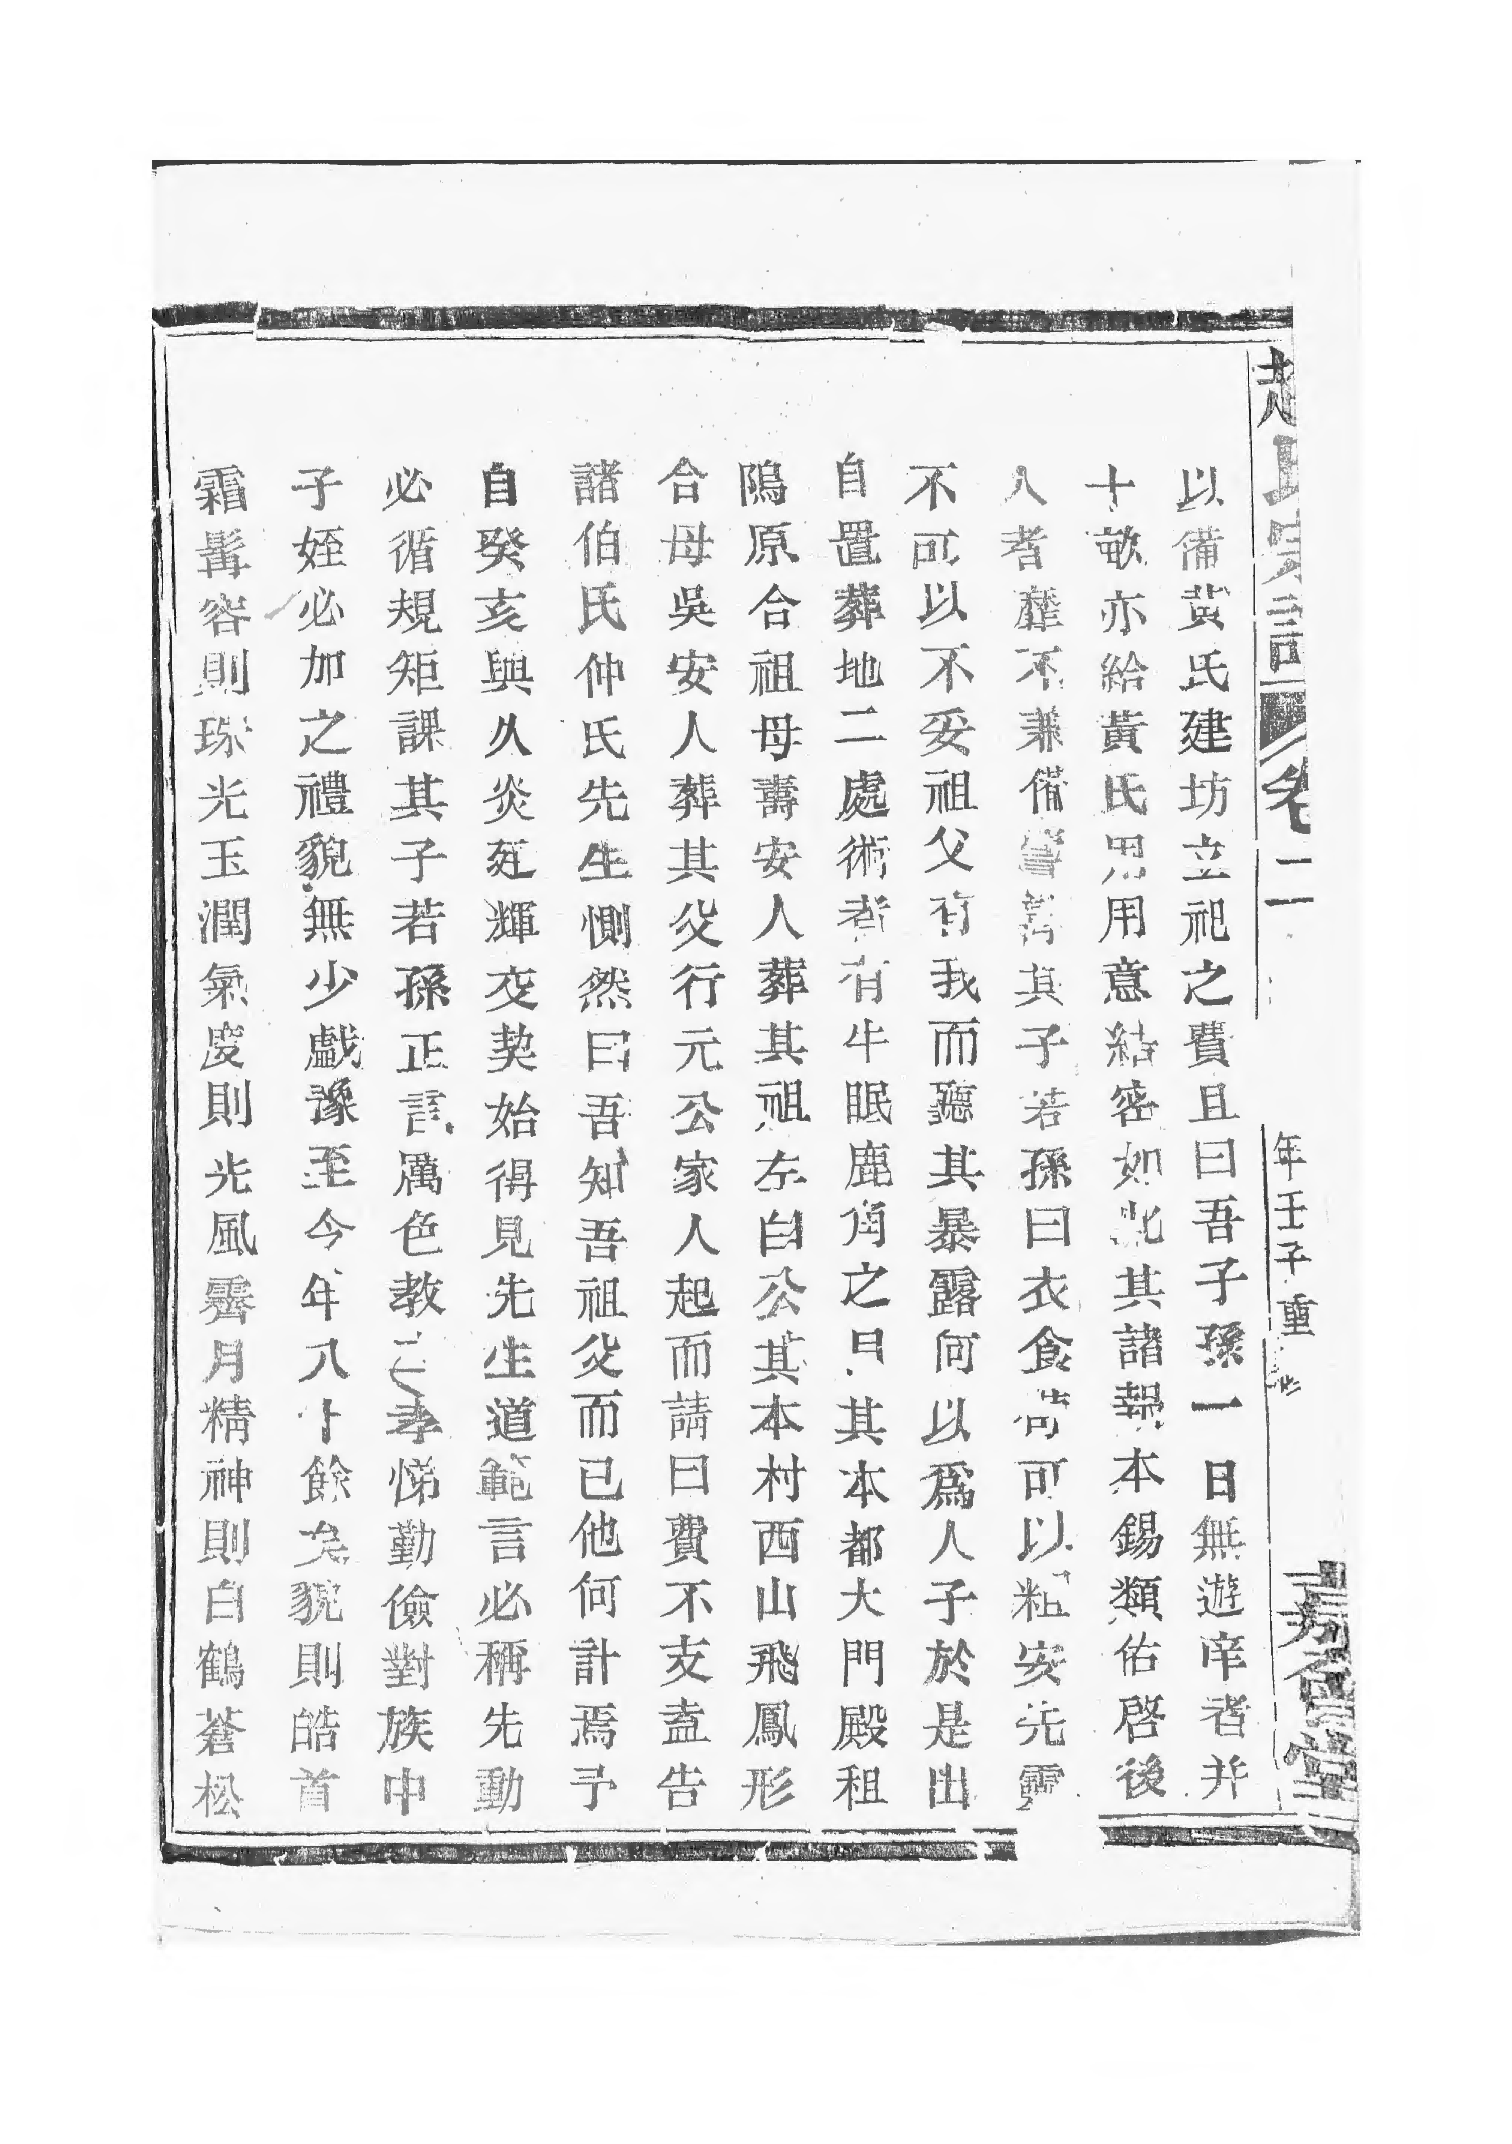 趙氏宗譜 卷二 年壬子重修 嘉德堂
以備黃氏建坊立祀之費且曰吾子孫一日無遊庠者并
十畝亦給黃氏男用用意結密如此其諸報本錫類佑啓後
人者靡不兼備嘗其子若孫曰衣食苟可以粗安先靈
不可以不妥祖父有我而聽其暴露何以爲人子於是出
自置葬地二處術者有牛眠鹿角之目其本都大門殿租
隝原合祖母壽安人葬其祖左白公其本村西山飛鳳形
合母吳安人葬其父行元公家人起而請曰費不支盍告
諸伯氏仲氏先生惻然曰吾知吾祖父而已他何計焉予
自癸亥與久炎延輝交契始得見先生道範言必稱先動
必循規矩課其子若孫正言厲色教之孝悌勤儉對族中
子姪必加之禮貌無少戲豫至今年八十餘矣貌則皓首
霜髯容則珠光玉潤氣度則光風霽月精神則白鶴蒼松